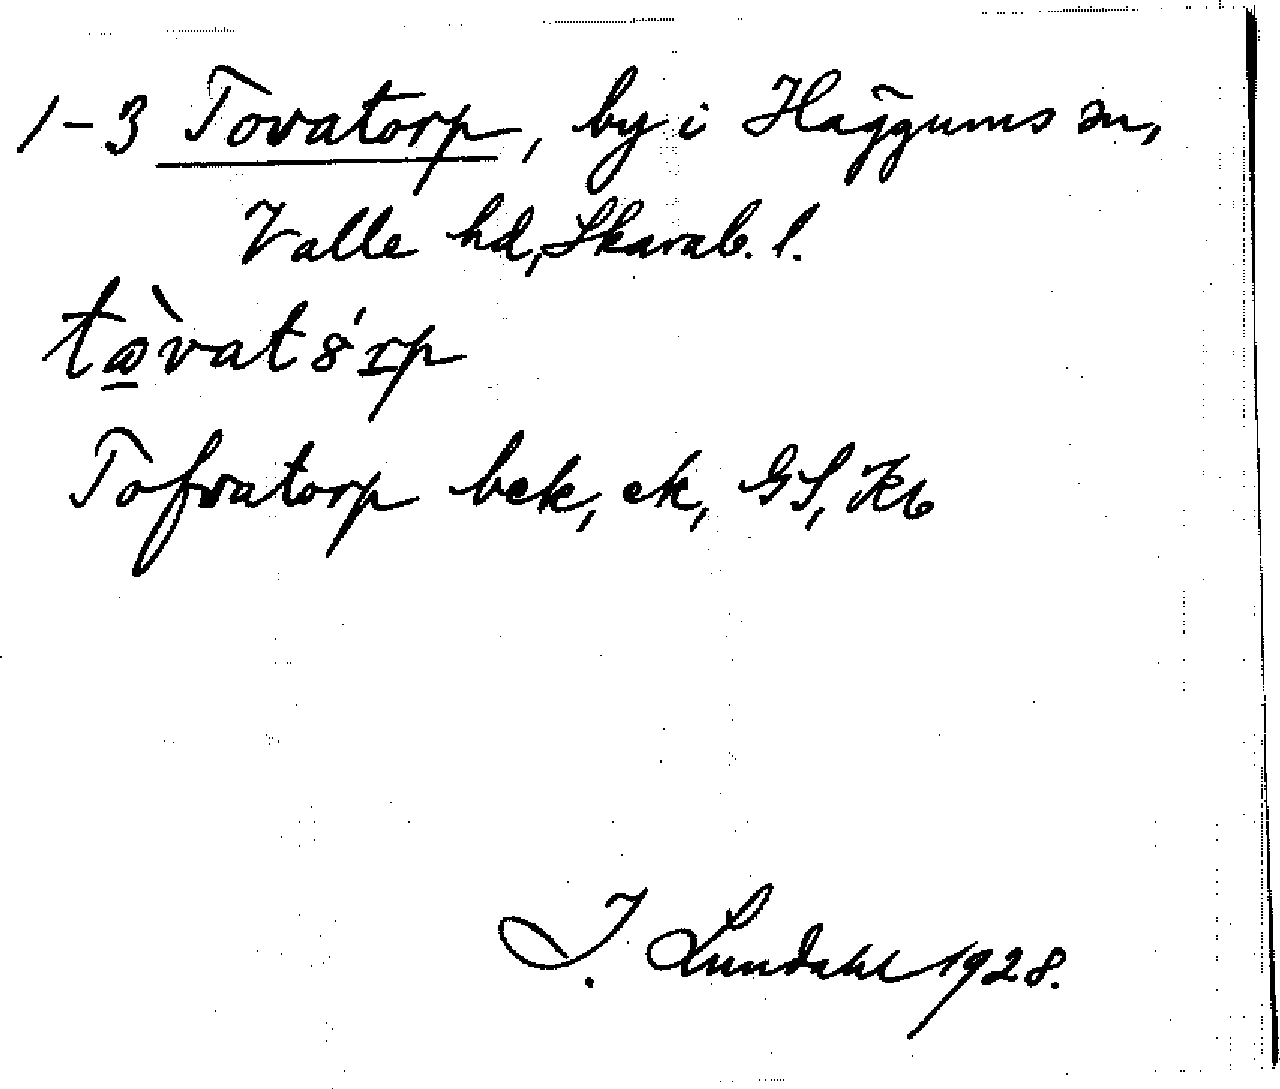 1-3 Tovatorp, by i Häggums sn,
Valle hd, Skarab. l.
Tofvatorp bek, ek, GS, Kb
I. Lundahl 1928.